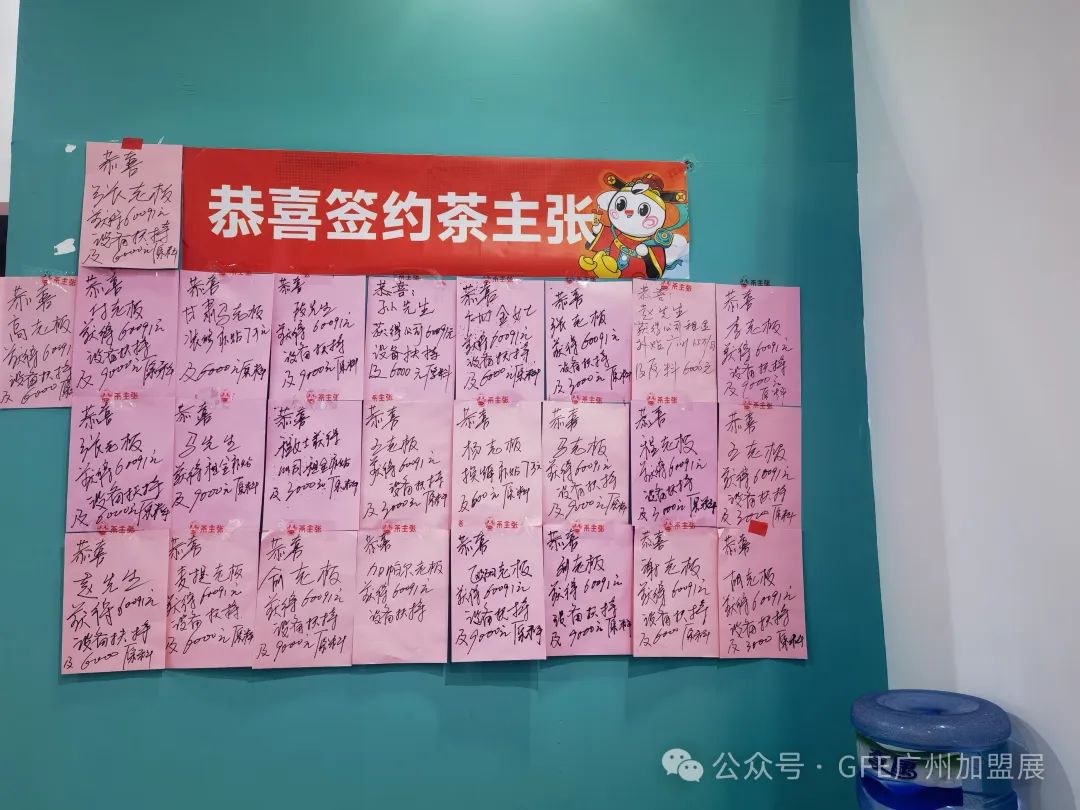 恭喜签约茶主张
恭喜
张老板
获得60091元
设备扶持
及6000元原料
恭喜
高老板
获得60091
设备扶持
及6000原料
恭喜
付老板
获得60091元
设备扶持
及9000元原料
恭喜
甘肃马老板
装修补贴7万元
及6000元原料
恭喜
先生
获得60091元
设备扶持
及9000元原料
恭喜：
孙先生
获得公司6009元
设备扶持
及6000元原料
恭喜
金女士
获得60091元
设备扶持
及6000元原料
恭喜
张老板
获得60091元
设备扶持
及3000元原料
恭喜
赵先生
获得公司租金
补贴
及原料6000元
恭喜
李老板
获得60091元
设备扶持
及9000元
原料
恭喜
张老板
获得60091元
设备扶持
及6000元原料
恭喜
马先生
获得租金补贴
及9000元原料
恭喜
程女士获得
公司租金补贴
及3000元原料
恭喜
王老板
获得60091元
设备扶持
及3000元原料
恭喜
杨老板
装修补贴7万元
及600元原料
恭喜
马老板
获得60091元
设备扶持
及9000元原料
恭喜
程老板
获得60091元
设备扶持
及3000元原料
恭喜
王老板
获得60091元
设备扶持
及3000原料
恭喜
赵先生
获得60091元
设备扶持
及6000原料
恭喜
麦提老板
获得60091元
设备扶持
及6000元原料
恭喜
俞老板
获得60091元
设备扶持
及9000元原料
恭喜
加帕尔老板
获得60091元
设备扶持
恭喜
欧阳老板
获得60091元
设备扶持
及9000元原料
恭喜
刘老板
获得60091元
设备扶持
及9000元原料
恭喜
谢老板
获得60091元
设备扶持
及6000原料
恭喜
胡老板
获得60091元
设备扶持
及3000原料
茶主张
公众号·GFE广州加盟展